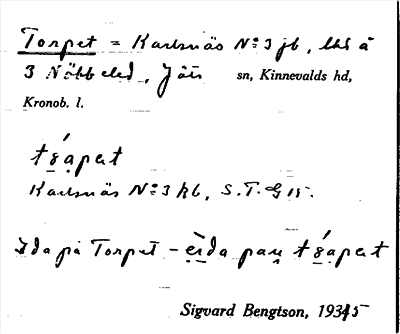 Torpet = Karlsnäs No 3 jb, lht å
3 Nöbbeled, Jäts sn, Kinnevalds hd,
Kronob. l.
Karlsnäs No 3 kb, S.T.G 15.
Ida på Torpet –
Sigvard Bengtson, 1935